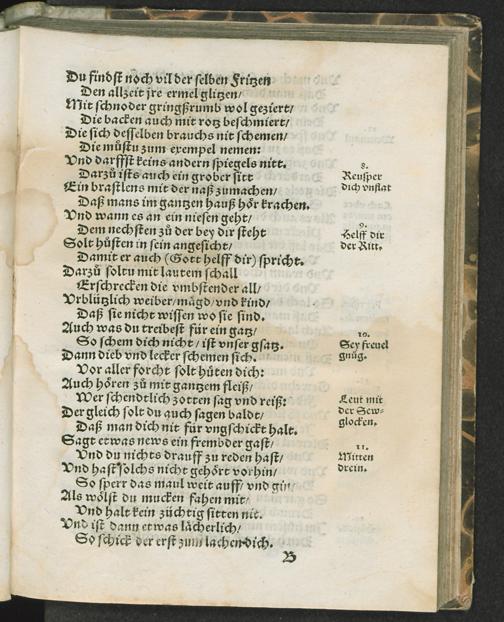 Du findst noch vil der selben Fritzen
Den allzeit jre ermel glitzen/
Mit schnoder gringßrumb wol geziert/
Die backen auch mit rotz beschmiert/
Die sich desselben brauchs nit schemen/
Die müstu zum exempel nemen:
Vnd darffst keins andern spiegels nitt.
Darzů ists auch ein grober sitt
8.
Reusper
dich vnflat
Ein brastlens mit der naß zumachen/
Daß mans im gantzen hauß hör krachen.
Vnd wann es an ein niesen geht/
Dem nechsten zů der bey dir steht
9.
Helff dir
der Ritt.
Solt hůsten in sein angesicht/
Damit er auch (Gott helff dir) spricht.
Darzů soltu mit lautem schall
Erschrecken die vmbstender all/
Vrblützlich weiber/mägd/vnd kind/
Daß sie nicht wissen wo sie sind.
Auch was du treibest für ein gatz/
So schem dich nicht/ ist vnser gsatz.
10.
Sey freuel
gnůg.
Dann dieb vnd lecker schemen sich.
Vor aller forcht solt hüten dich:
Auch hören zů mit gantzem fleiß/
Wer schendtlich zotten sag vnd reiß:
Leut mit
der Sew-
glocken.
Der gleich solt du auch sagen baldt/
Daß man dich nit für vngschickt halt.
Sagt etwas news ein frembder gast/
Vnd du nichts drauff zu reden hast/
11.
Mitten
drein.
Vnd hast solchs nicht gehört vorhin/
So sperr das maul weit auff/ vnd
Als wölst du mucken fahen mit/
Vnd halt kein züchtig sitten nit.
Vnd ist dann etwas lächerlich/
So schick der erst zum lachen dich.
B